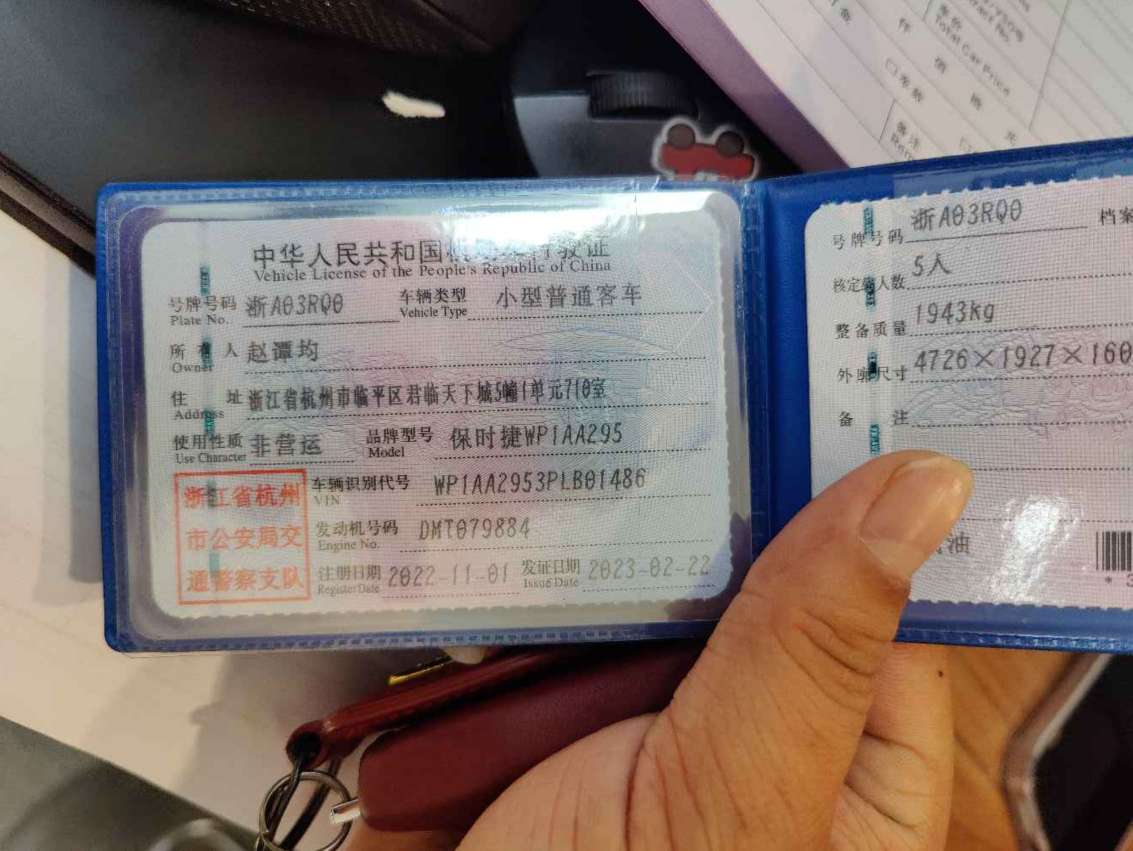 中华人民共和国机动车行驶证
Vehicle License of the People's Republic of China
号牌号码 浙A03RQ0 车辆类型 小型普通客车
Plate No. Vehicle Type
所有人 赵谭均
Owner
住址 浙江省杭州市临平区君临天下城5幢1单元710室
Address
使用性质 非营运 品牌型号 保时捷WP1AA295
Use Character Model
浙江省杭州
市公安局交
通警察支队
车辆识别代号 WP1AA2953PLB01486
VIN
发动机号码 DMT079884
Engine No.
注册日期 2022-11-01 发证日期 2023-02-22
Register Date Issue Date
号牌号码 浙A03RQ0 档案
核定载人数 5人
整备质量 1943kg
外廓尺寸 4726×1927×160
备注
油
Total Car Price